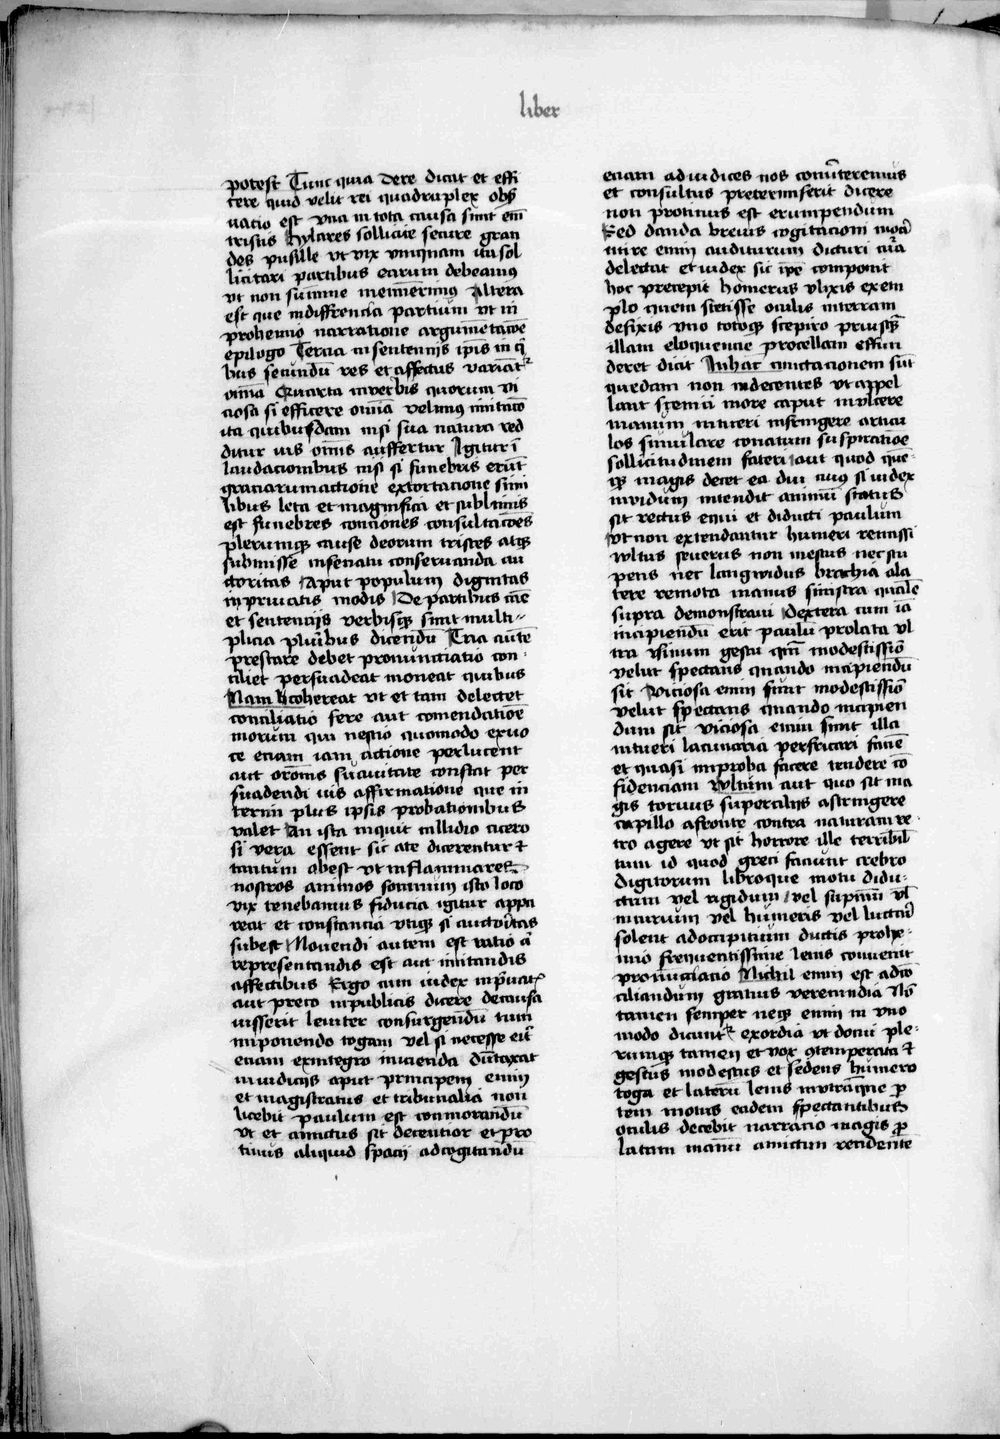 liber
potest Tunc quia dere dicat et effi
cere quid velit rei quadruplex obs̄
uatio est vna in tota causa sunt em̄
tristes hylares sollicite secure gran
des pusille vt vix vmquam ita sol
licitari partibus earum debeamus
vt non sum̄me memin̄erimus Altera
est que in differencia partium vt in
prohemio narratione argum̄etac̄oe
epilogo Tercia in sentencijs ip̄is in q̄
bus secundū res et affectus variāt
om̄ia Quarta in verbis quorum vi
ciosa si efficere om̄ia velimus imitac̄o
ita quibusdam nisi sua natura red
ditur uis om̄is auffertur Igitur ī
laudacionibus nisi si funebris erūt
graciarumactione exhortacione simi
libus leta et magnifica et sublimis
est funebres conciones consultac̄oes
plerumq̧ cause deorum tristes atq̧
submisse in senatu conseruanda au
ctoritas Aput populum dignitas
in priuatis modis De partibus cāe
et sentencijs verbisq̧ sunt multi
plicia pluribus dicendū Tria autē
prestare debet pronunciatio con
ciliet persuadeat moneat quibus
Nam hcohereat vt et tam delectet
conciliatio fere aut comendatiōe
morum qui nescio quomodo ex vo
ce etiam iam actione perlucent
aut orōnis suauitate constat per
suadendi uis affirmatione que in
terim plus ipsis probationibus
valet An ista inquit callidio cicero
si vera essent sic a te dicerentur et
tantum abest vt inflammares
nostros animos somnum isto loco
vix tenebamus fiducia igitur appa
reat et constancia vtiq̧ si auctoritas
subest Mouendi autem est ratio q̄
representandis est aut imitandis
affectibus Ergo cum iudex in priuatꝭ
aut preco in publicis dicere de causa
iusserit leuiter consurgendū tum
in ponendo togam vel si necesse erit
etiam ex integro inicienda dūtaxat
in iudicijs aput principem enim
et magistratus et tribunalia non
licebit paulum est conmorandū
vt et amictus sit decentior et pro
tinus aliquid spacij ad cogitandū
etiam ad iudices nos conūteremus
et consultus pretermiserit dicere
non protinus est erumpendum
Sed danda breuis cogitacioni mora
mire enim auditurum dicturi cura
delectat et iudex sic ip̄e componit
hoc precepit homerus vlixis exem
plo quem stetisse oculis in terram
defixis vno totoq̧ sceptro priusq̧
illam eloquencie procellam effun
deret dicit In hac cunctacionem sūt
quedam non indecentes vt appel
lant scenici more caput mulcere
manum intueri infringere articu
los simulare conatum suspirac̄oe
sollicitudinem fateri aut quod que
q̧ magis decet ea diu cuius si iudex
nondum intendit animū status
sit rectus equi et diducti paulum
vt non extendantur humeri remissi
vultus seuerus non mestus nec stu
pens nec langwidus brachia a la
tere remota manus sinistra qualē
supra demonstraui Dextera cum iā
incipiendū erit paulū prolata vl
tra sinum gestu q̄m modestissīo
velut spectans quando incipiendū
sit Viciosa enim sunt modestissīo
velut spectans quando incipien
dum sit viciosa enim sunt illa
intueri lacunaria perfricari faciē
et quasi improba facere tendere cō
fidenciam vultum aut quo sit ma
gis toruus supercilijs astringere
capillo a fronte contra naturam re
tro agere vt sit horrore ille terribil
tum id quod greci faciunt crebro
digitorum libroque motu didu
ctum vel rigidum vel supinū vl
nuturum vel humeris vel luctari
solent ad occipitium ductis prohe
mio frequentissime lenis conuenit
pronunciacio Nichil enim est ad cō
ciliandum gratius verecundia Nō
tamen semper neq̧ enim in vno
modo dicuntꝛ exordia vt docui ple
rumq̧ tamen et vox 9temperata et
gestus modestus et sedens humero
toga et laterū lenis in vtramq̧ue p̄
tem motus eadem spectantibus
oculis decebit narratio magis p̄
latam manū amictum recidente